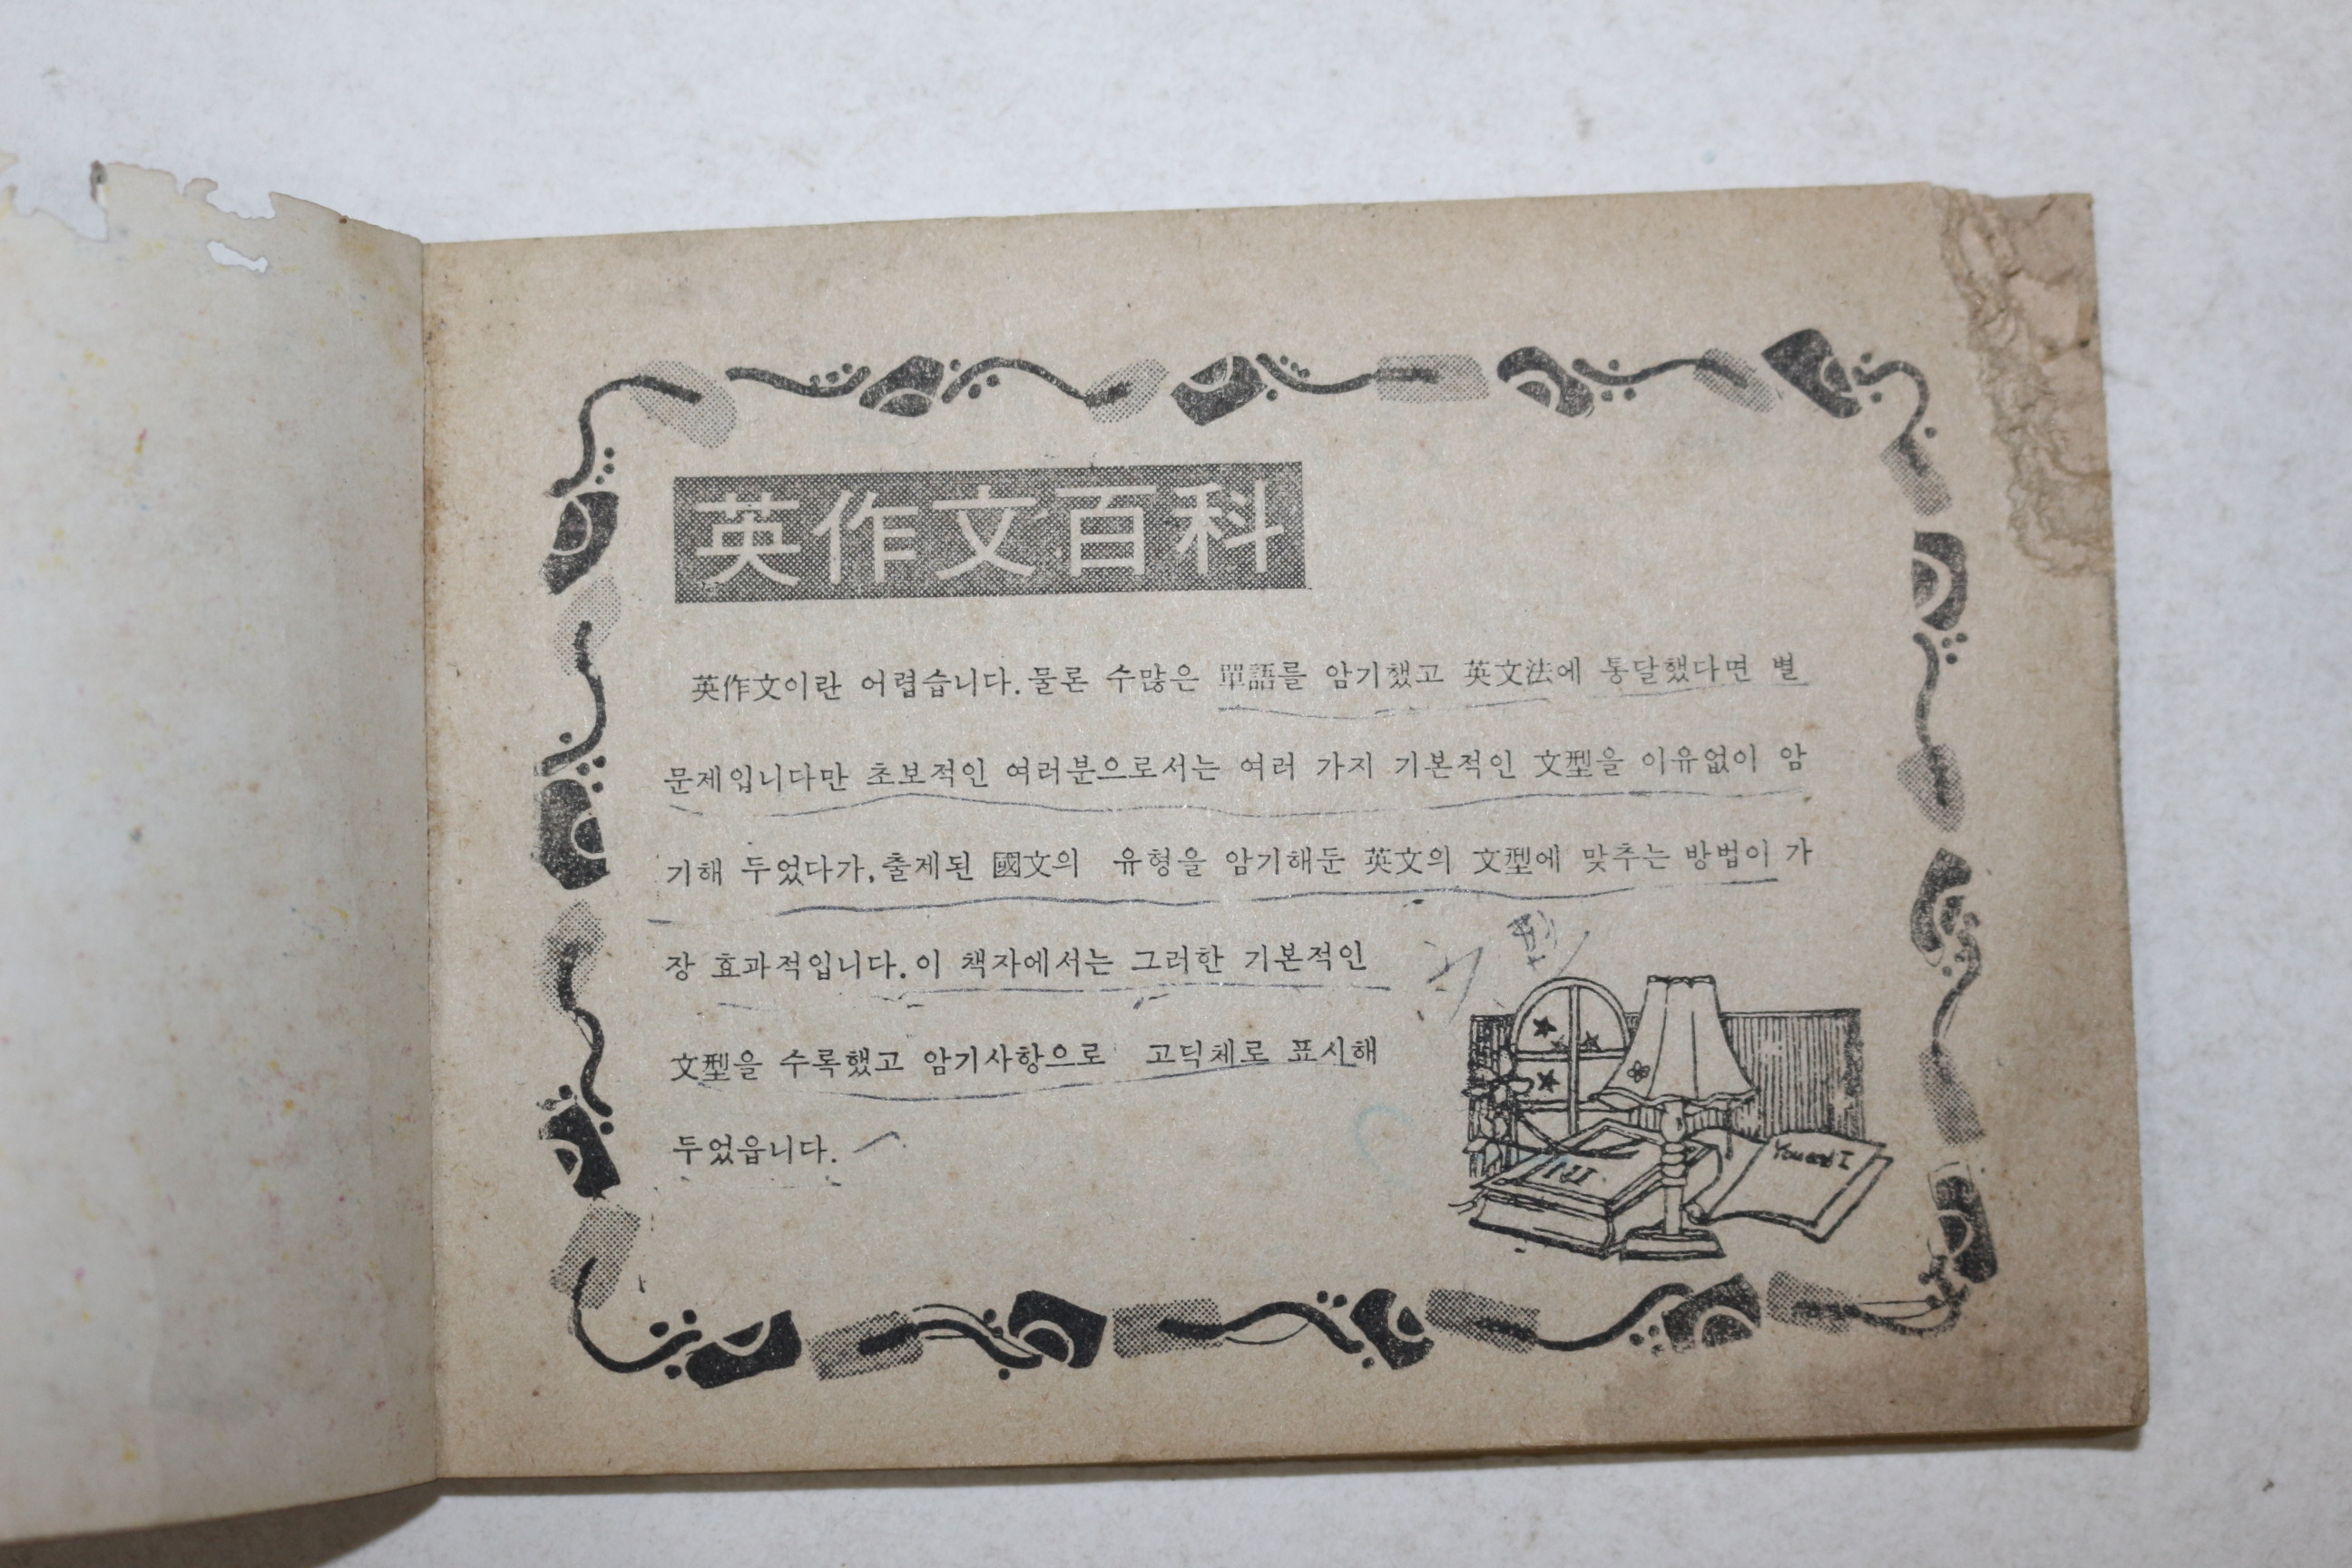 英作文百科
英作文이란 어렵습니다. 물론 수많은 單語를 암기했고 英文法에 통달했다면 별
문제입니다만 초보적인 여러분으로서는 여러 가지 기본적인 文型을 이유없이 암
기해 두었다가, 출제된 國文의 유형을 암기해둔 英文의 文型에 맞추는 방법이 가
장 효과적입니다. 이 책자에서는 그러한 기본적인
文型을 수록했고 암기사항으로 고딕체로 표시해
두었읍니다.
You and I